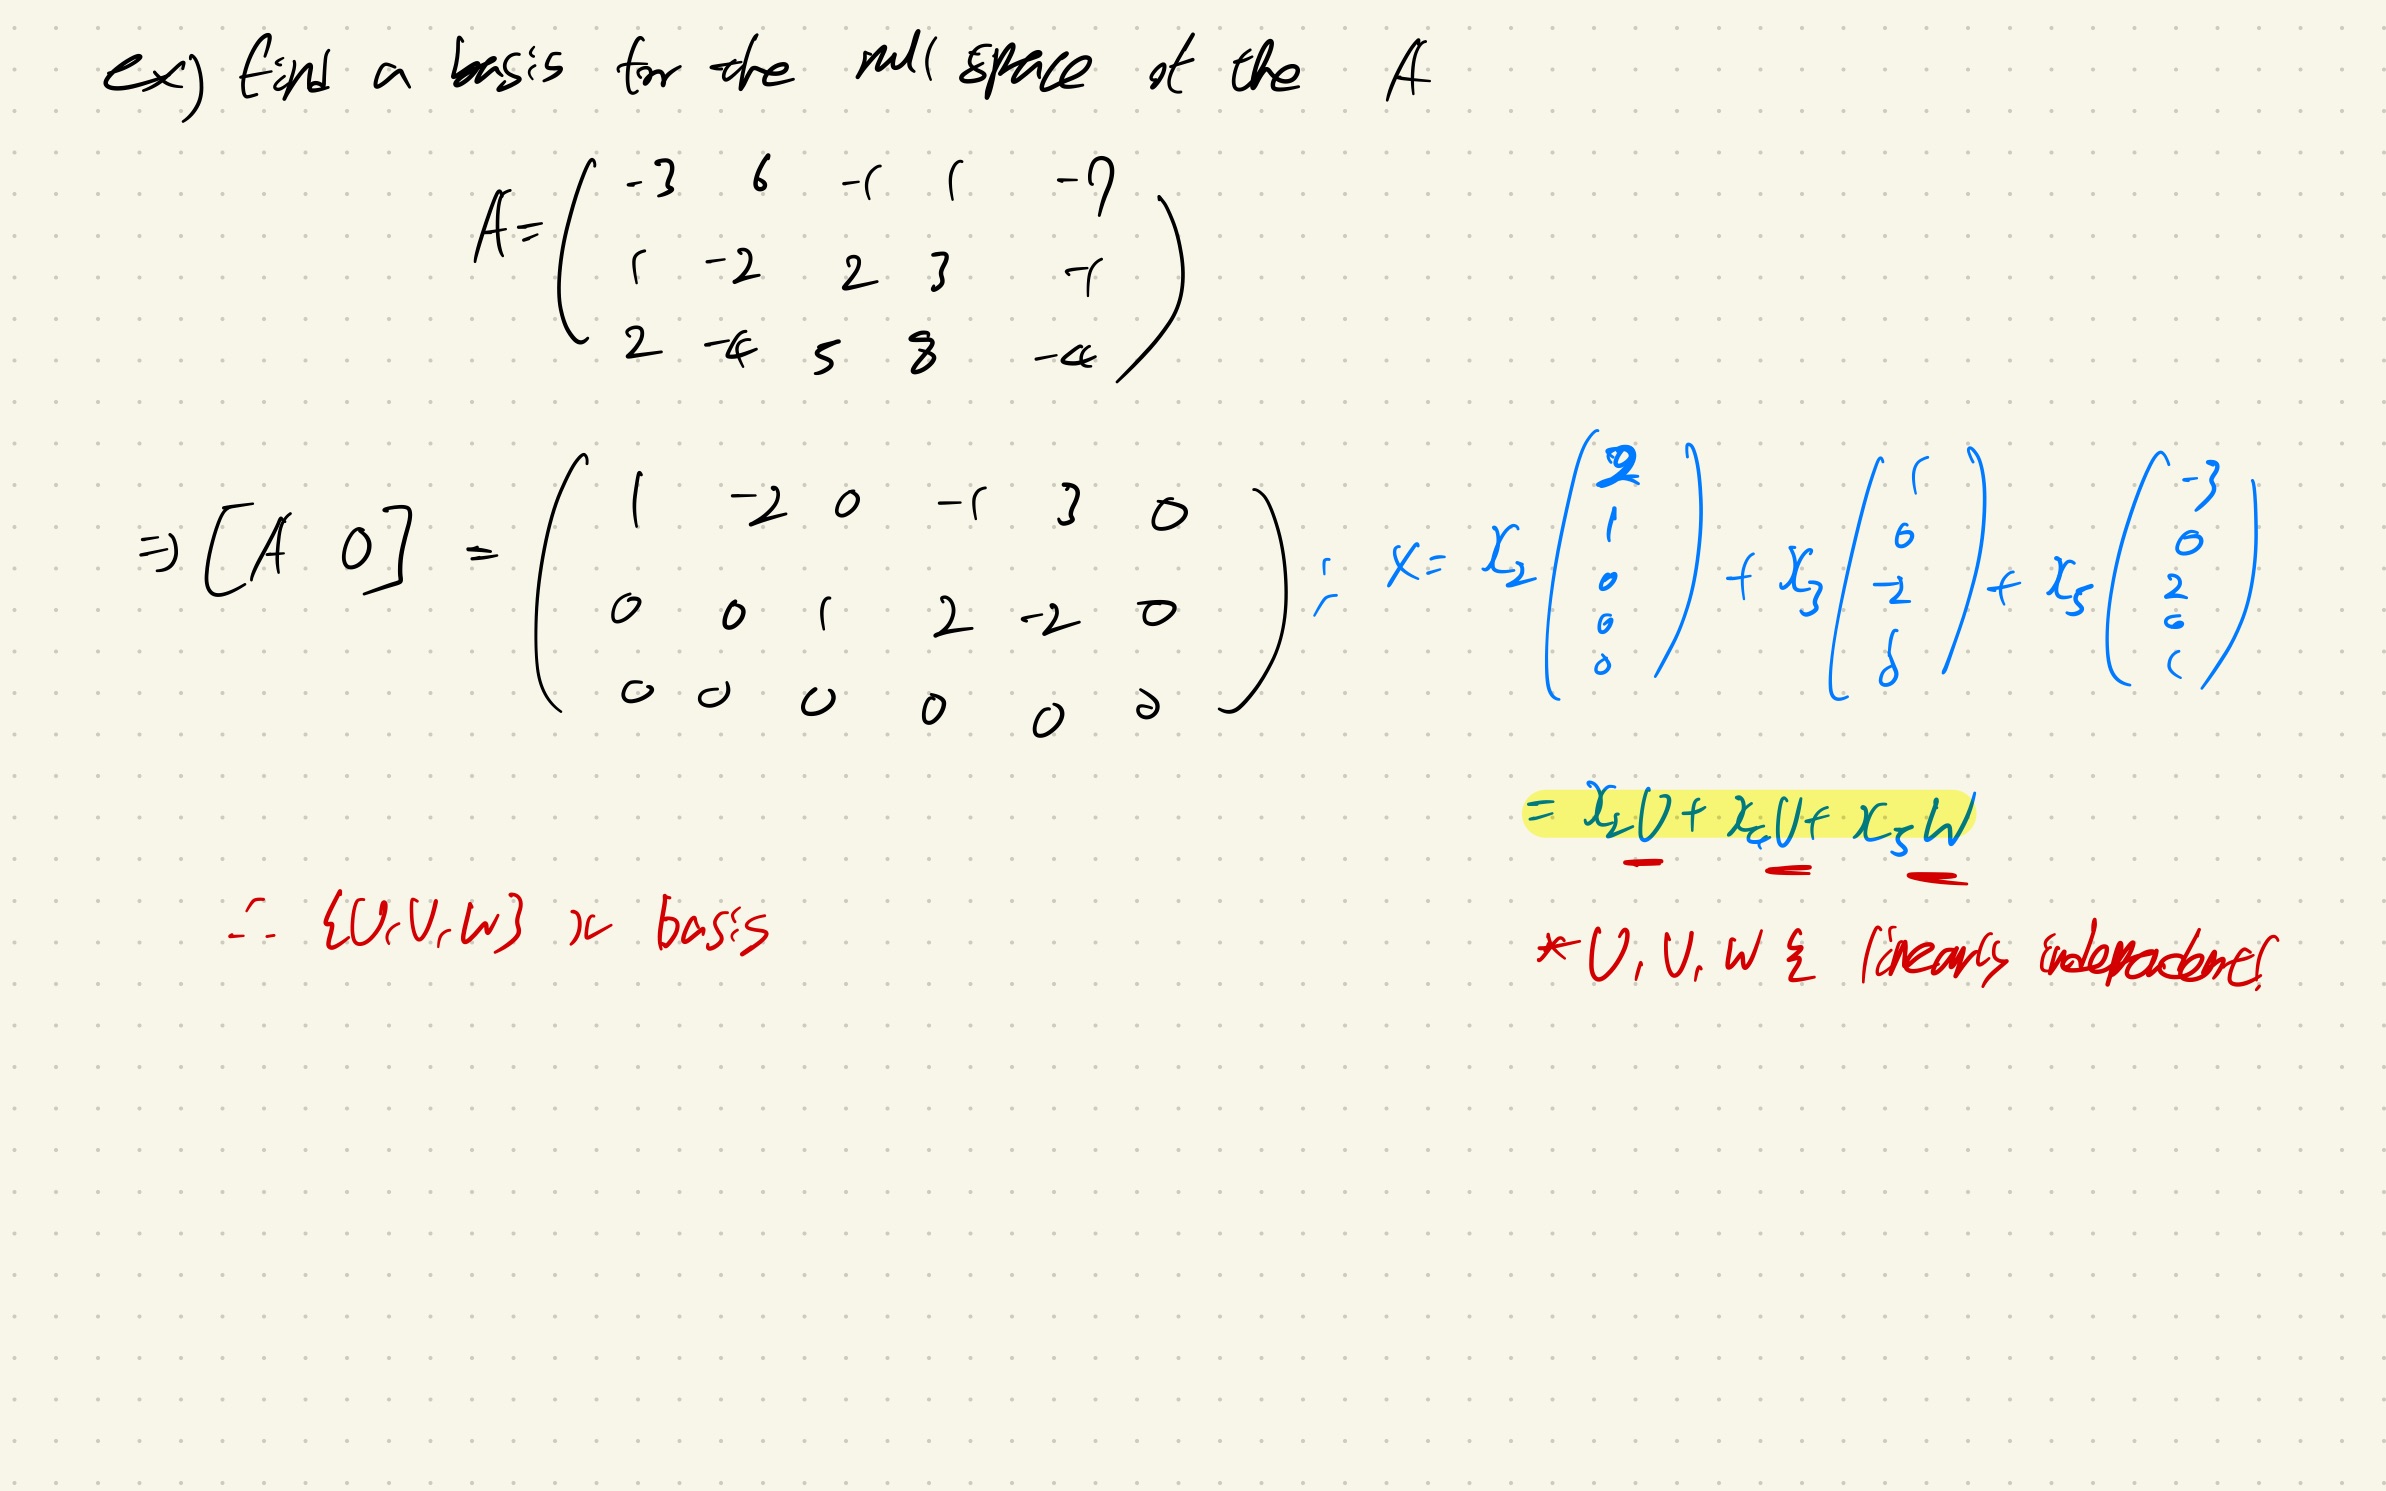 ex) find a basis for the null space of the A
A = ( -3 6 -1 1 -7
1 -2 2 3 -1
2 -4 5 8 -4 )
⇒ [A 0] = ( 1 -2 0 -1 3 0
0 0 1 2 -2 0
0 0 0 0 0 0 ) ∴ x = x₂ ( 2 1 0 0 0 ) + x₃ ( 1 0 -2 1 0 ) + x₅ ( -3 0 2 0 1 )
= x₂U + x₄V + x₅W
∴ {U, V, W} basis
* U, V, W linearly independent